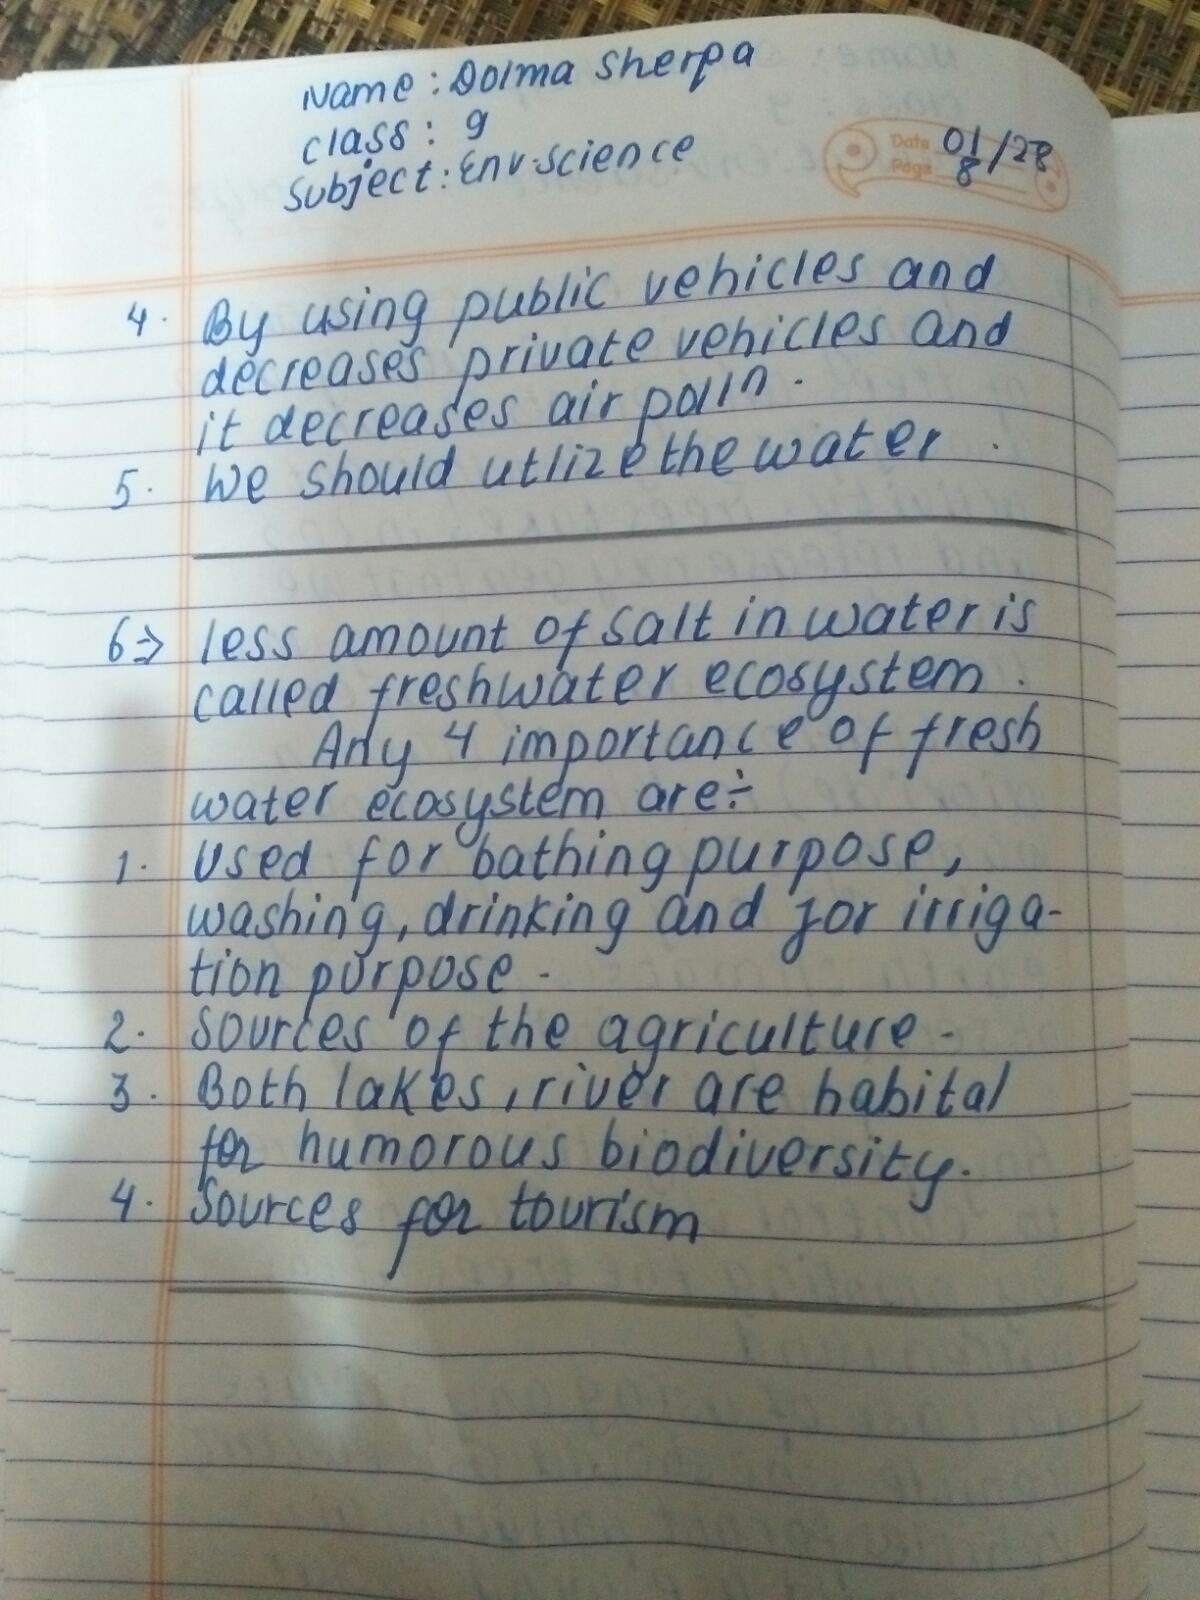 Name : Dolma Sherpa
class : 9
Subject : Env. science
Date 01/28
Page 8
4. By using public vehicles and
decreases private vehicles and
it decreases air polln.
5. We should utlize the water.
6⇒ less amount of salt in water is
called freshwater ecosystem.
Any 4 importance of fresh
water ecosystem are÷
1. Used for bathing purpose,
washing, drinking and for irriga-
tion purpose.
2. Sources of the agriculture.
3. Both lakes, river are habital
for humorous biodiversity.
4. Sources for tourism